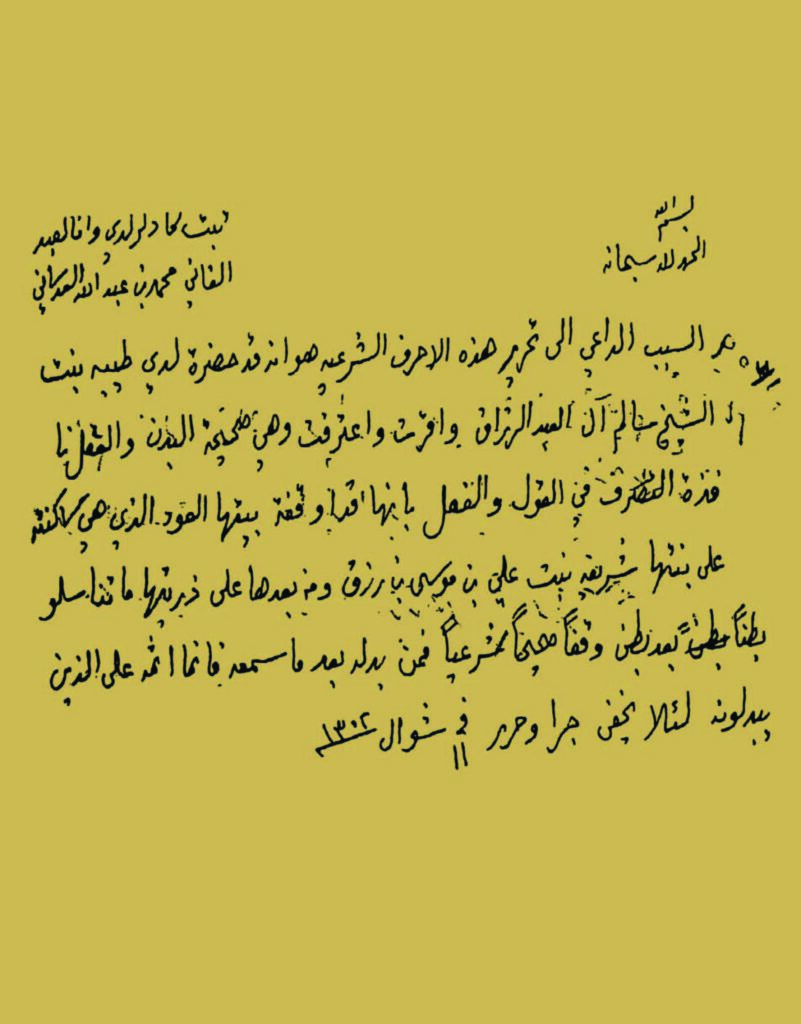 بسم الله
الحمد لله سبحانه
ثبت لدي وانا العبد
الفاني محمد بن عبد الله العدساني
السبب الداعي الى تحرير هذه الاحرف الشرعيه هو انه قد حضرة لدي طيبه بنت
الشيخ سالم آل العبد الرزاق واقرت واعترفت وهي صحيحة البدن والعقل نا
فذة التصرف في القول والفعل بانها قد اوقفة بيتها العود الذي هي ساكنته
على بنتها شريفه بنت علي بن موسى بن رزق ومن بعدها على ذريتها ما تناسلو
بطناً بعد بطن وقفاً صحيحاً شرعياً فمن بدله بعد ما سمعه فانما اثمه على الذين
يبدلونه لئلا يخفى جرا وحرر في ١١ شوال ١٣٠٢